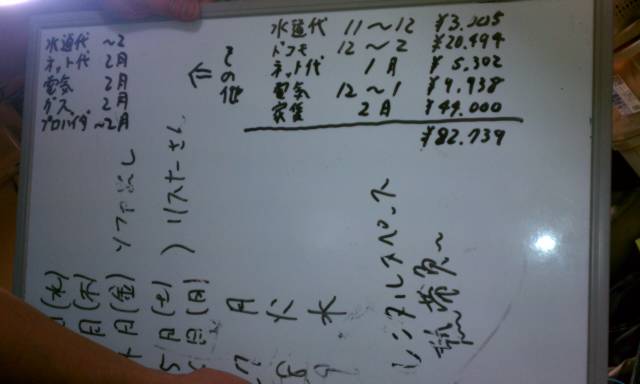 水道代 11~12 ¥3.005
ドコモ 12~2 ¥20.494
ネット代 1月 ¥5.302
電気 12~1 ¥9.938
家賃 2月 ¥44.000
¥82.739
その他
水道代 ~2
ネット代 2月
電気 2月
ガス 2月
プロバイダ ~2月
(水)
月(木)
月(金) ソファ
5月(土)
(日) リスナーさん
月
火
水
レンタルスペース